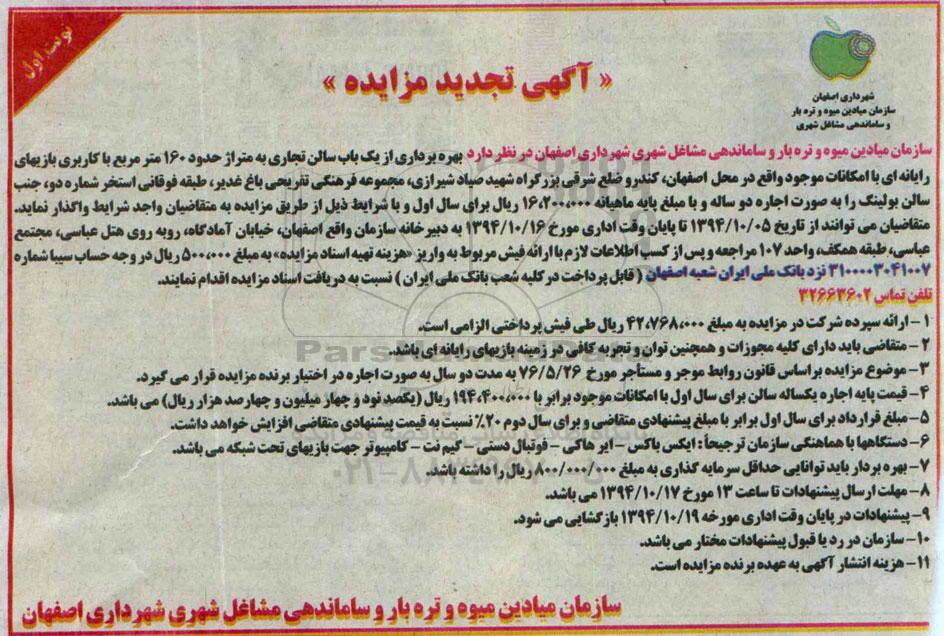 نوبت اول
شهرداری اصفهان
سازمان میادین میوه و تره بار
و ساماندهی مشاغل شهری
« آگهی تجدید مزایده »
سازمان میادین میوه و تره بار و ساماندهی مشاغل شهری شهرداری اصفهان در نظر دارد بهره برداری از یک باب سالن تجاری به متراژ حدود ۱۶۰ متر مربع با کاربری بازیهای
رایانه ای با امکانات موجود واقع در محل اصفهان، کندرو ضلع شرقی بزرگراه شهید صیاد شیرازی، مجموعه فرهنگی تفریحی باغ غدیر، طبقه فوقانی استخر شماره دو، جنب
سالن بولینگ را به صورت اجاره دو ساله و با مبلغ پایه ماهیانه ۱۶،۲۰۰،۰۰۰ ریال برای سال اول و با شرایط ذیل از طریق مزایده به متقاضیان واجد شرایط واگذار نماید.
متقاضیان می توانند از تاریخ ۱۳۹۴/۱۰/۰۵ تا پایان وقت اداری مورخ ۱۳۹۴/۱۰/۱۶ به دبیرخانه سازمان واقع اصفهان، خیابان آمادگاه، روبه روی هتل عباسی، مجتمع
عباسی، طبقه همکف، واحد ۱۰۷ مراجعه و پس از کسب اطلاعات لازم با ارائه فیش مربوط به واریز «هزینه تهیه اسناد مزایده» به مبلغ ۵۰۰،۰۰۰ ریال در وجه حساب سیبا شماره
۳۱۰۰۰۰۳۰۴۱۰۰۷ نزد بانک ملی ایران شعبه اصفهان ( قابل پرداخت در کلیه شعب بانک ملی ایران ) نسبت به دریافت اسناد مزایده اقدام نمایند.
تلفن تماس ۳۲۶۶۳۶۰۲
۱- ارائه سپرده شرکت در مزایده به مبلغ ۴۲،۷۶۸،۰۰۰ ریال طی فیش پرداختی الزامی است.
۲- متقاضی باید دارای کلیه مجوزات و همچنین توان و تجربه کافی در زمینه بازیهای رایانه ای باشد.
۳- موضوع مزایده براساس قانون روابط موجر و مستأجر مورخ ۷۶/۵/۲۶ به مدت دو سال به صورت اجاره در اختیار برنده مزایده قرار می گیرد.
۴- قیمت پایه اجاره یکساله سالن برای سال اول با امکانات موجود برابر با ۱۹۴،۴۰۰،۰۰۰ ریال (یکصد نود و چهار میلیون و چهارصد هزار ریال) می باشد.
۵- مبلغ قرارداد برای سال اول برابر با مبلغ پیشنهادی متقاضی و برای سال دوم ۲۰٪ نسبت به قیمت پیشنهادی متقاضی افزایش خواهد داشت.
۶- دستگاهها با هماهنگی سازمان ترجیحاً : ایکس باکس - ایر هاکی - فوتبال دستی - گیم نت - کامپیوتر جهت بازیهای تحت شبکه می باشد.
۷- بهره بردار باید توانایی حداقل سرمایه گذاری به مبلغ ۸۰۰/۰۰۰/۰۰۰ ریال را داشته باشد.
۸- مهلت ارسال پیشنهادات تا ساعت ۱۳ مورخ ۱۳۹۴/۱۰/۱۷ می باشد.
۹- پیشنهادات در پایان وقت اداری مورخه ۱۳۹۴/۱۰/۱۹ بازگشایی می شود.
۱۰- سازمان در رد یا قبول پیشنهادات مختار می باشد.
۱۱- هزینه انتشار آگهی به عهده برنده مزایده است.
سازمان میادین میوه و تره بار و ساماندهی مشاغل شهری شهرداری اصفهان